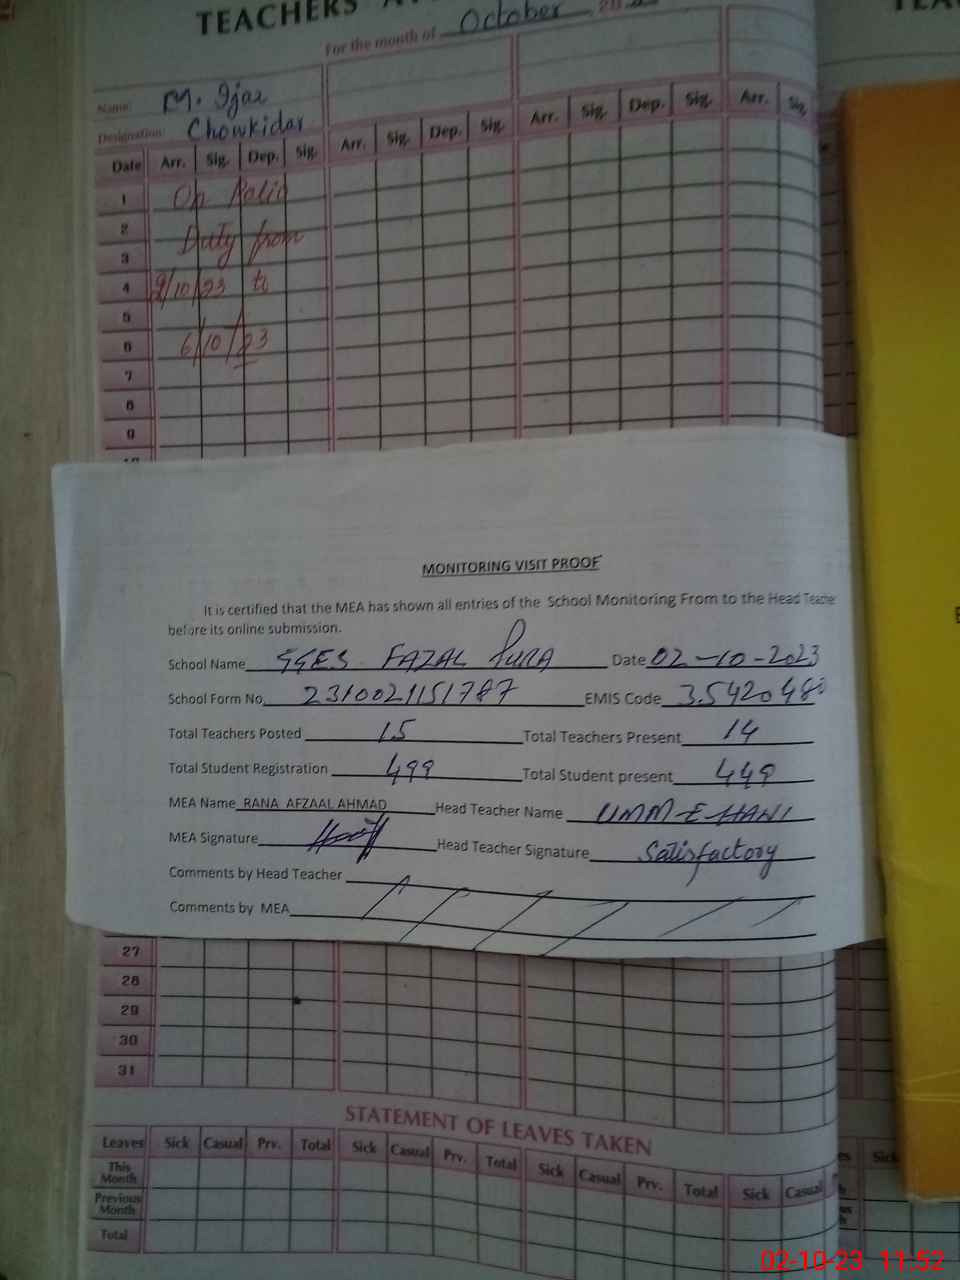 TEACHERS
For the month of October 20
Name: M. Ijaz
Designation: Chowkidar
Date Arr. Sig. Dep. Sig. Arr. Sig. Dep. Sig. Arr. Sig. Dep. Sig. Arr. Sig.
1 On Polio
2
Duty from
3
4 2/10/23 to
5
6 6/10/23
7
8
9
MONITORING VISIT PROOF
It is certified that the MEA has shown all entries of the School Monitoring From to the Head Teacher
before its online submission.
School Name GGES FAZAL PURA Date 02-10-2023
School Form No. 2310021151787 EMIS Code 3.5420480
Total Teachers Posted 15 Total Teachers Present 14
Total Student Registration 499 Total Student present 449
MEA Name RANA AFZAAL AHMAD Head Teacher Name UMM-E-HANI
MEA Signature Head Teacher Signature Satisfactory
Comments by Head Teacher
Comments by MEA
27
28
29
30
31
STATEMENT OF LEAVES TAKEN
Leaves Sick Casual Prv. Total Sick Casual Prv. Total Sick Casual Prv. Total Sick Casual
This Month
Previous Month
Total
02-10-23 11:52